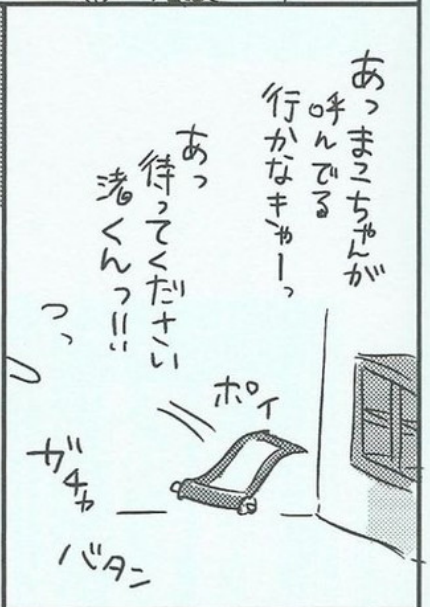 あっまこちゃんが
呼んでる
行かなきゃーっ
あっ
待ってください
渚くんっ!!
ポイ
っっ
ガチャ
バタン